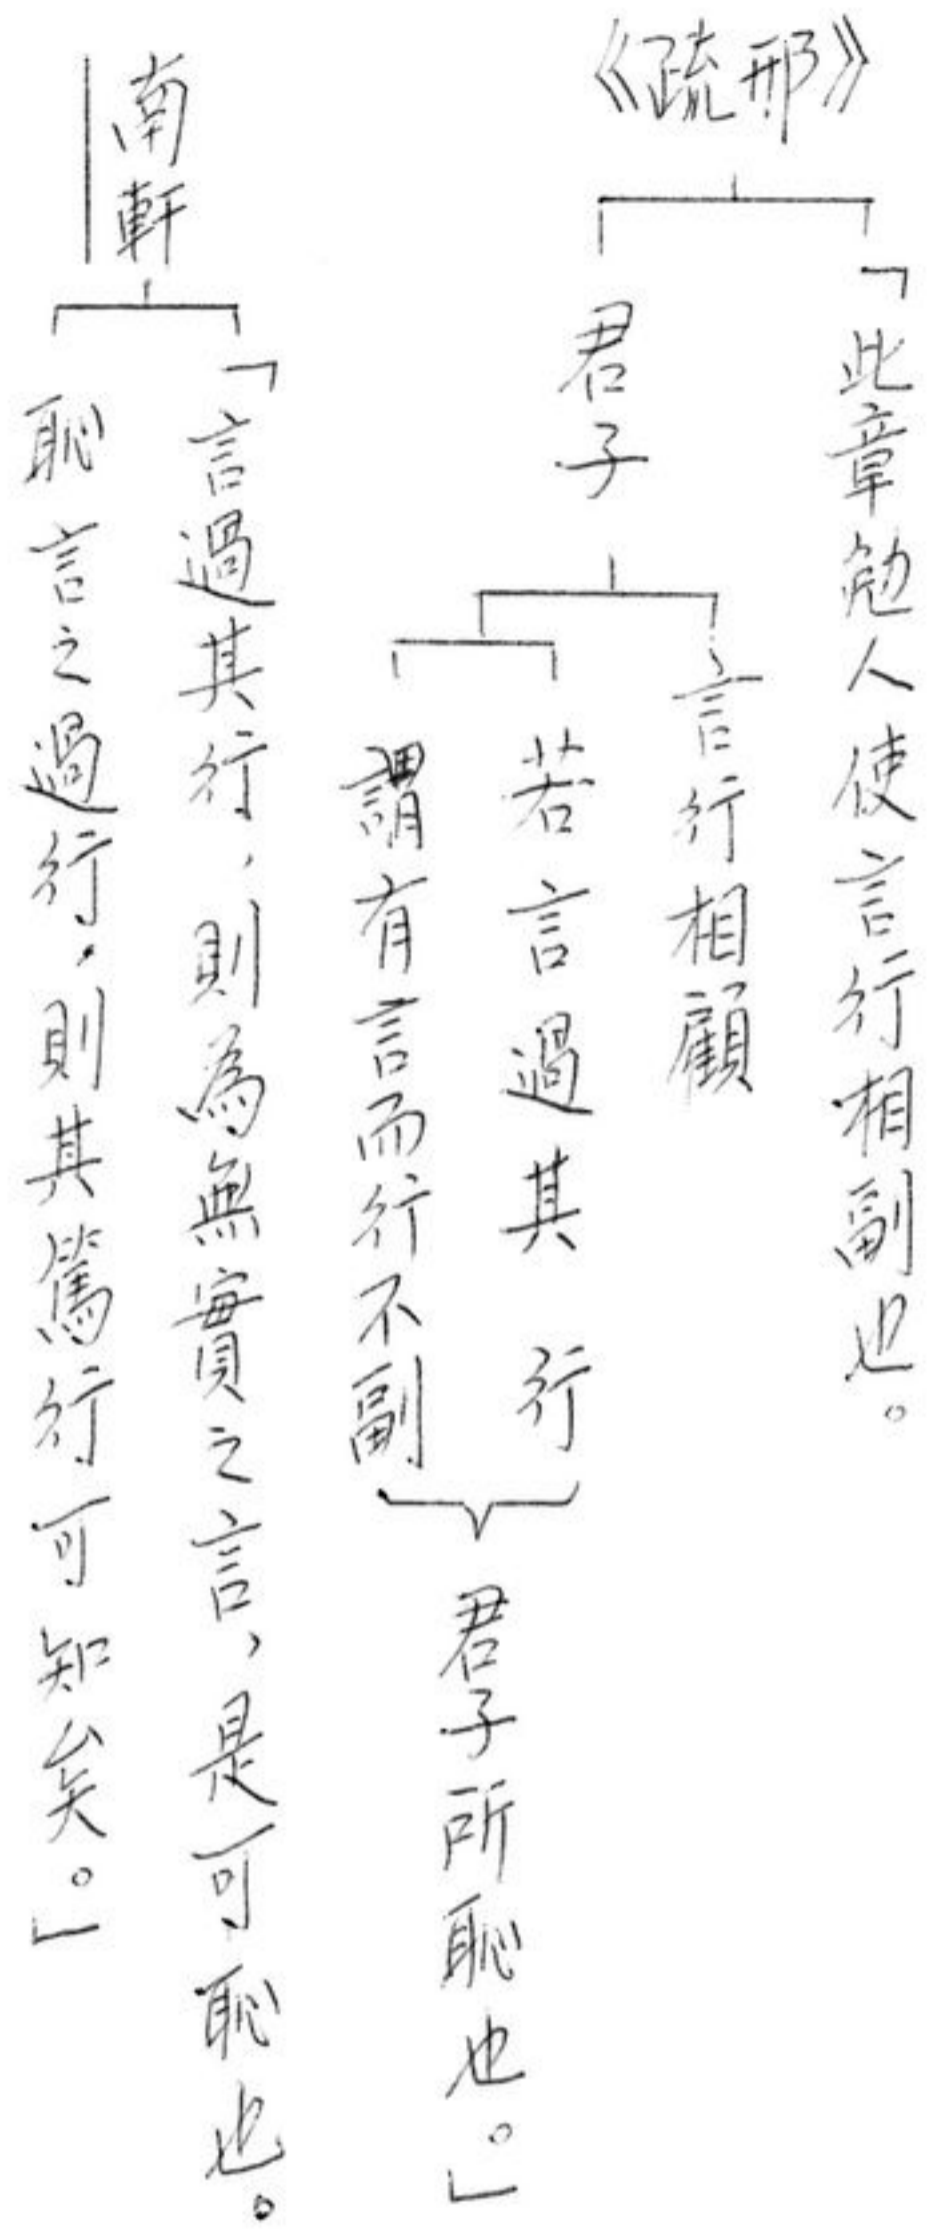 《邢疏》
「此章勉人使言行相副也。
君子
言行相顧
若言過其行
謂有言而行不副
君子所恥也。」
南軒
「言過其行，則為無實之言，是可恥也。
恥言之過行，則其篤行可知矣。」